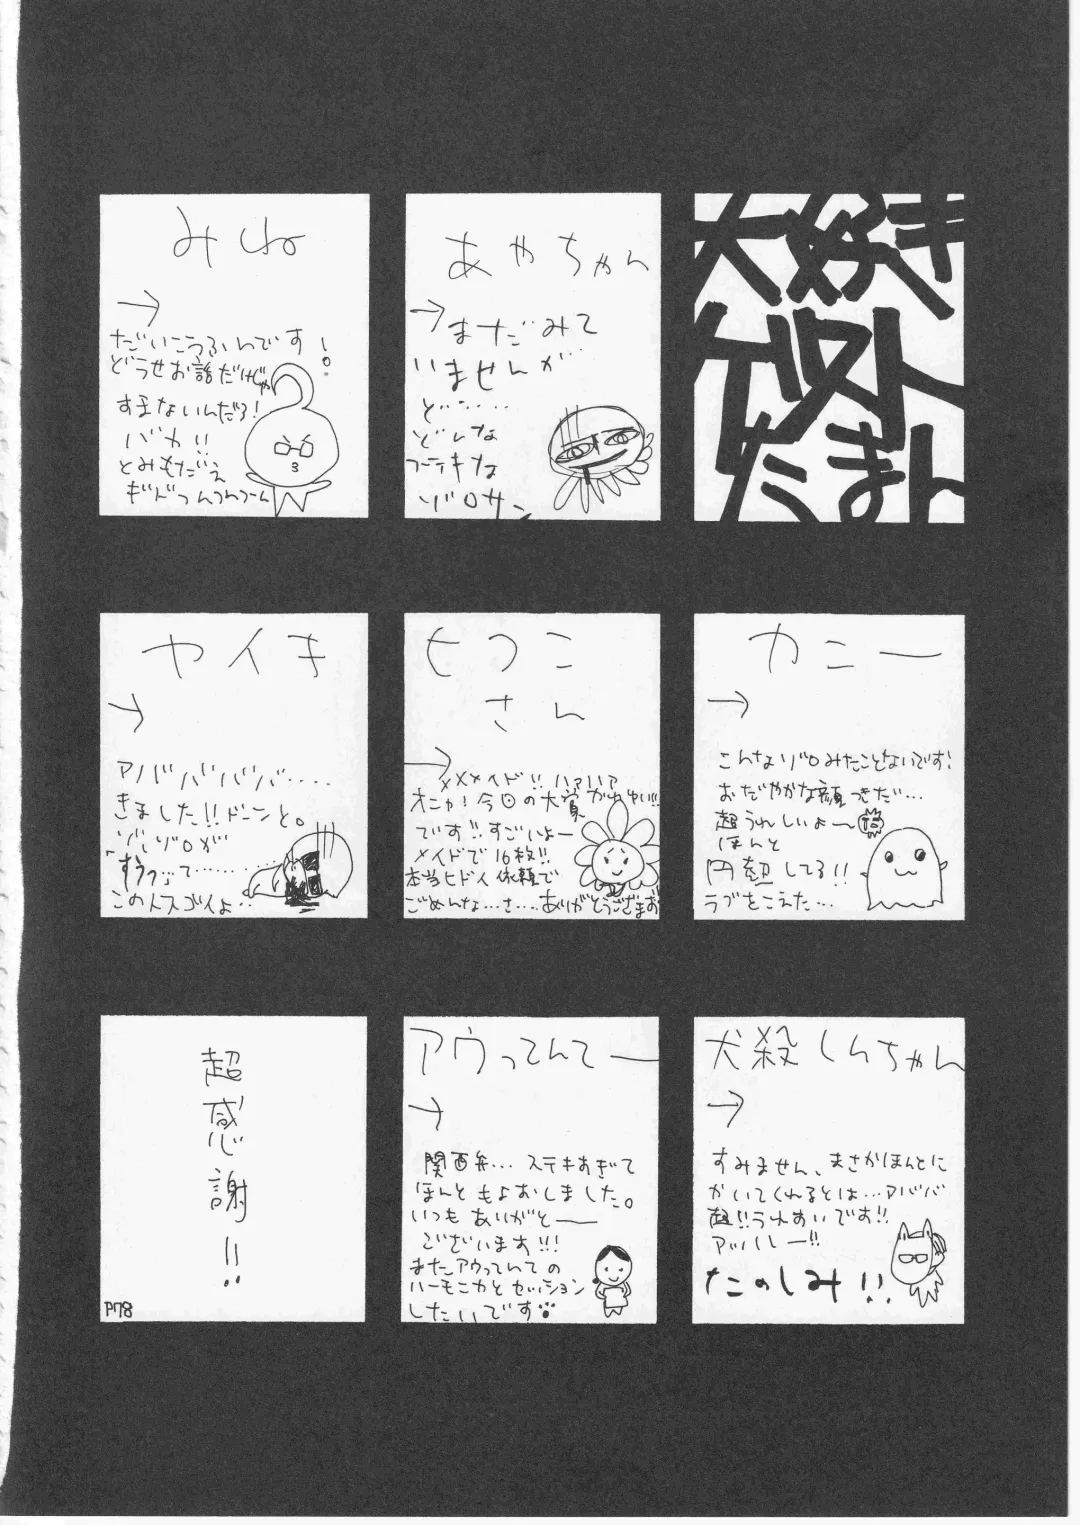 大好き
ゲスト
たまん
あやちゃん
→
まだみて
いませんが…
ど……
どんな
ステキな
ゾロサン
みね
→
だいこうふんです!
どうせお話だけじゃ
すまないんだろ!
バカ!!
とみもだえ
カニー
→
こんなゾロみたことないです!
おだやかな顔つきだ…
超うれしいよ〜
ほんと
円熟してる!!
ラブをこえた…
ヒワコ
さん
→
メメメイド!! ハァハァ
です!! すごいよー
メイドで16枚!!
本当ヒドイ依頼で
ごめんな…さ…
ありがとうございます
ヤイキ
→
アババババ....
きました!! ドーンと。
ゾゾゾロが
「すうっ」って……
このトスゴイよ…
犬殺しんちゃん
→
すみません、まさかほんとに
かいてくれるとは…アババ
超!!うれすいです!!
アッハレー!!
たのしみ!!
アウってんてー
→
関西弁… ステキすぎて
ほんともよおしました。
いつもありがとー
ございます!!!
またアウってんての
ハーモニカとセッション
したいです
超感謝!!
P78